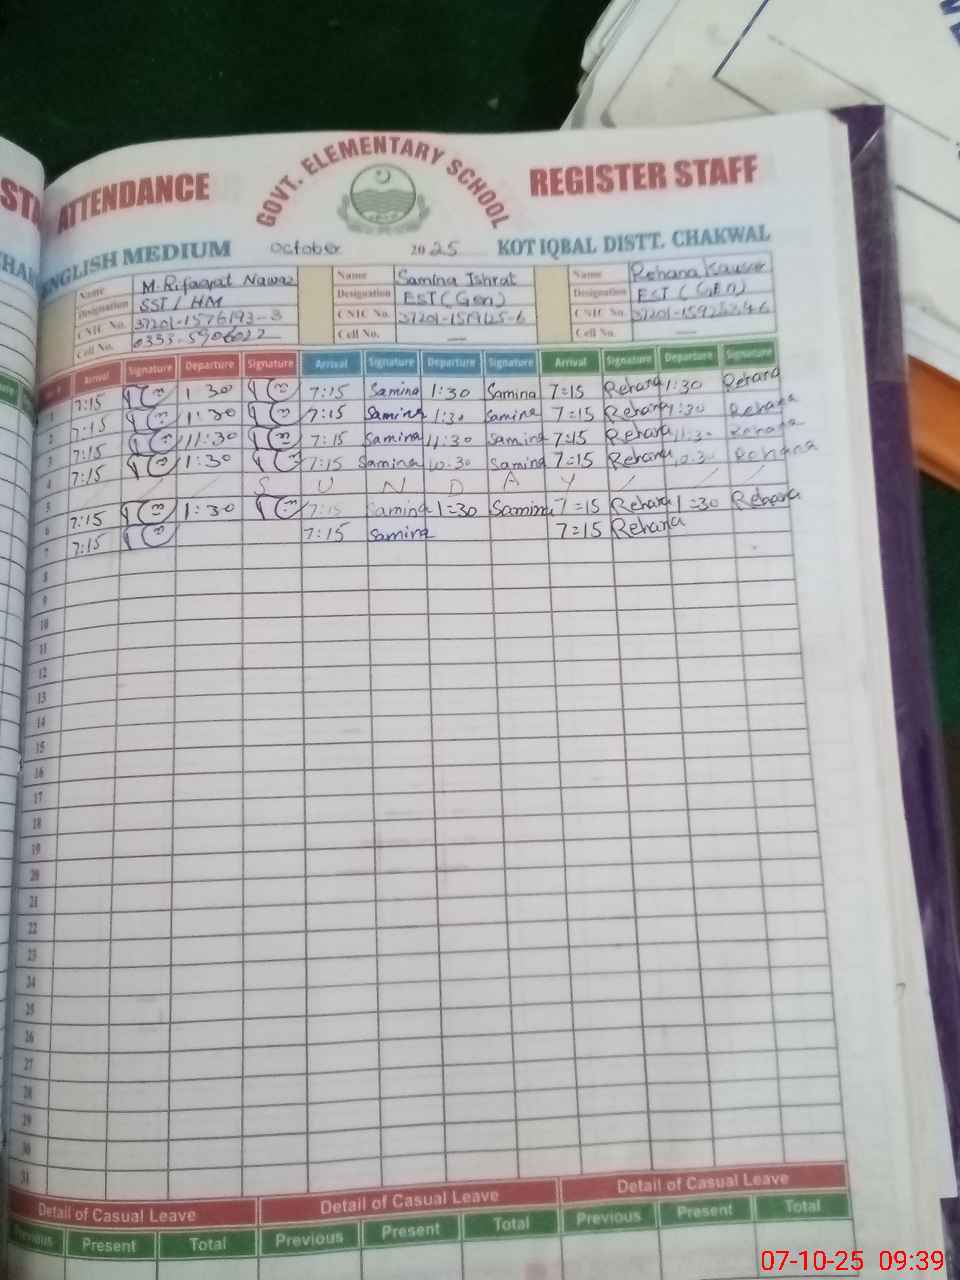 ATTENDANCE
GOVT. ELEMENTARY SCHOOL
REGISTER STAFF
ENGLISH MEDIUM October 2025 KOT IQBAL DISTT. CHAKWAL
Name M. Rifaqat Nawaz Name Samina Ishrat Name Rehana Kausar
Designation SST / HM Designation EST (Gen) Designation EST (GEN)
CNIC No. 37201-1576193-3 CNIC No. CNIC No.
Cell No. Cell No. — Cell No. —
Arrival Signature Departure Signature Arrival Signature Departure Signature Arrival Signature Departure Signature
1 7:15 1:30 7:15 Samina 1:30 Samina 7=15 Rehana 1:30 Rehana
2 7:15 1:30 7:15 Samina 1:30 Samina 7=15 Rehana 1:30 Rehana
3 7:15 11:30 7:15 Samina 11:30 Samina 7=15 Rehana 11:30 Rehana
4 7:15 1:30 7:15 Samina 10:30 Samina 7=15 Rehana 10:30 Rehana
5 S U N D A Y
6 7:15 1:30 7:15 Samina 1=30 Samina 7=15 Rehana 1=30 Rehana
7 7:15 7:15 Samina 7=15 Rehana
8
9
10
11
12
13
14
15
16
17
18
19
20
21
22
23
24
25
26
27
28
29
30
31
Detail of Casual Leave Detail of Casual Leave Detail of Casual Leave
Previous Present Total Previous Present Total Previous Present Total
07-10-25 09:39